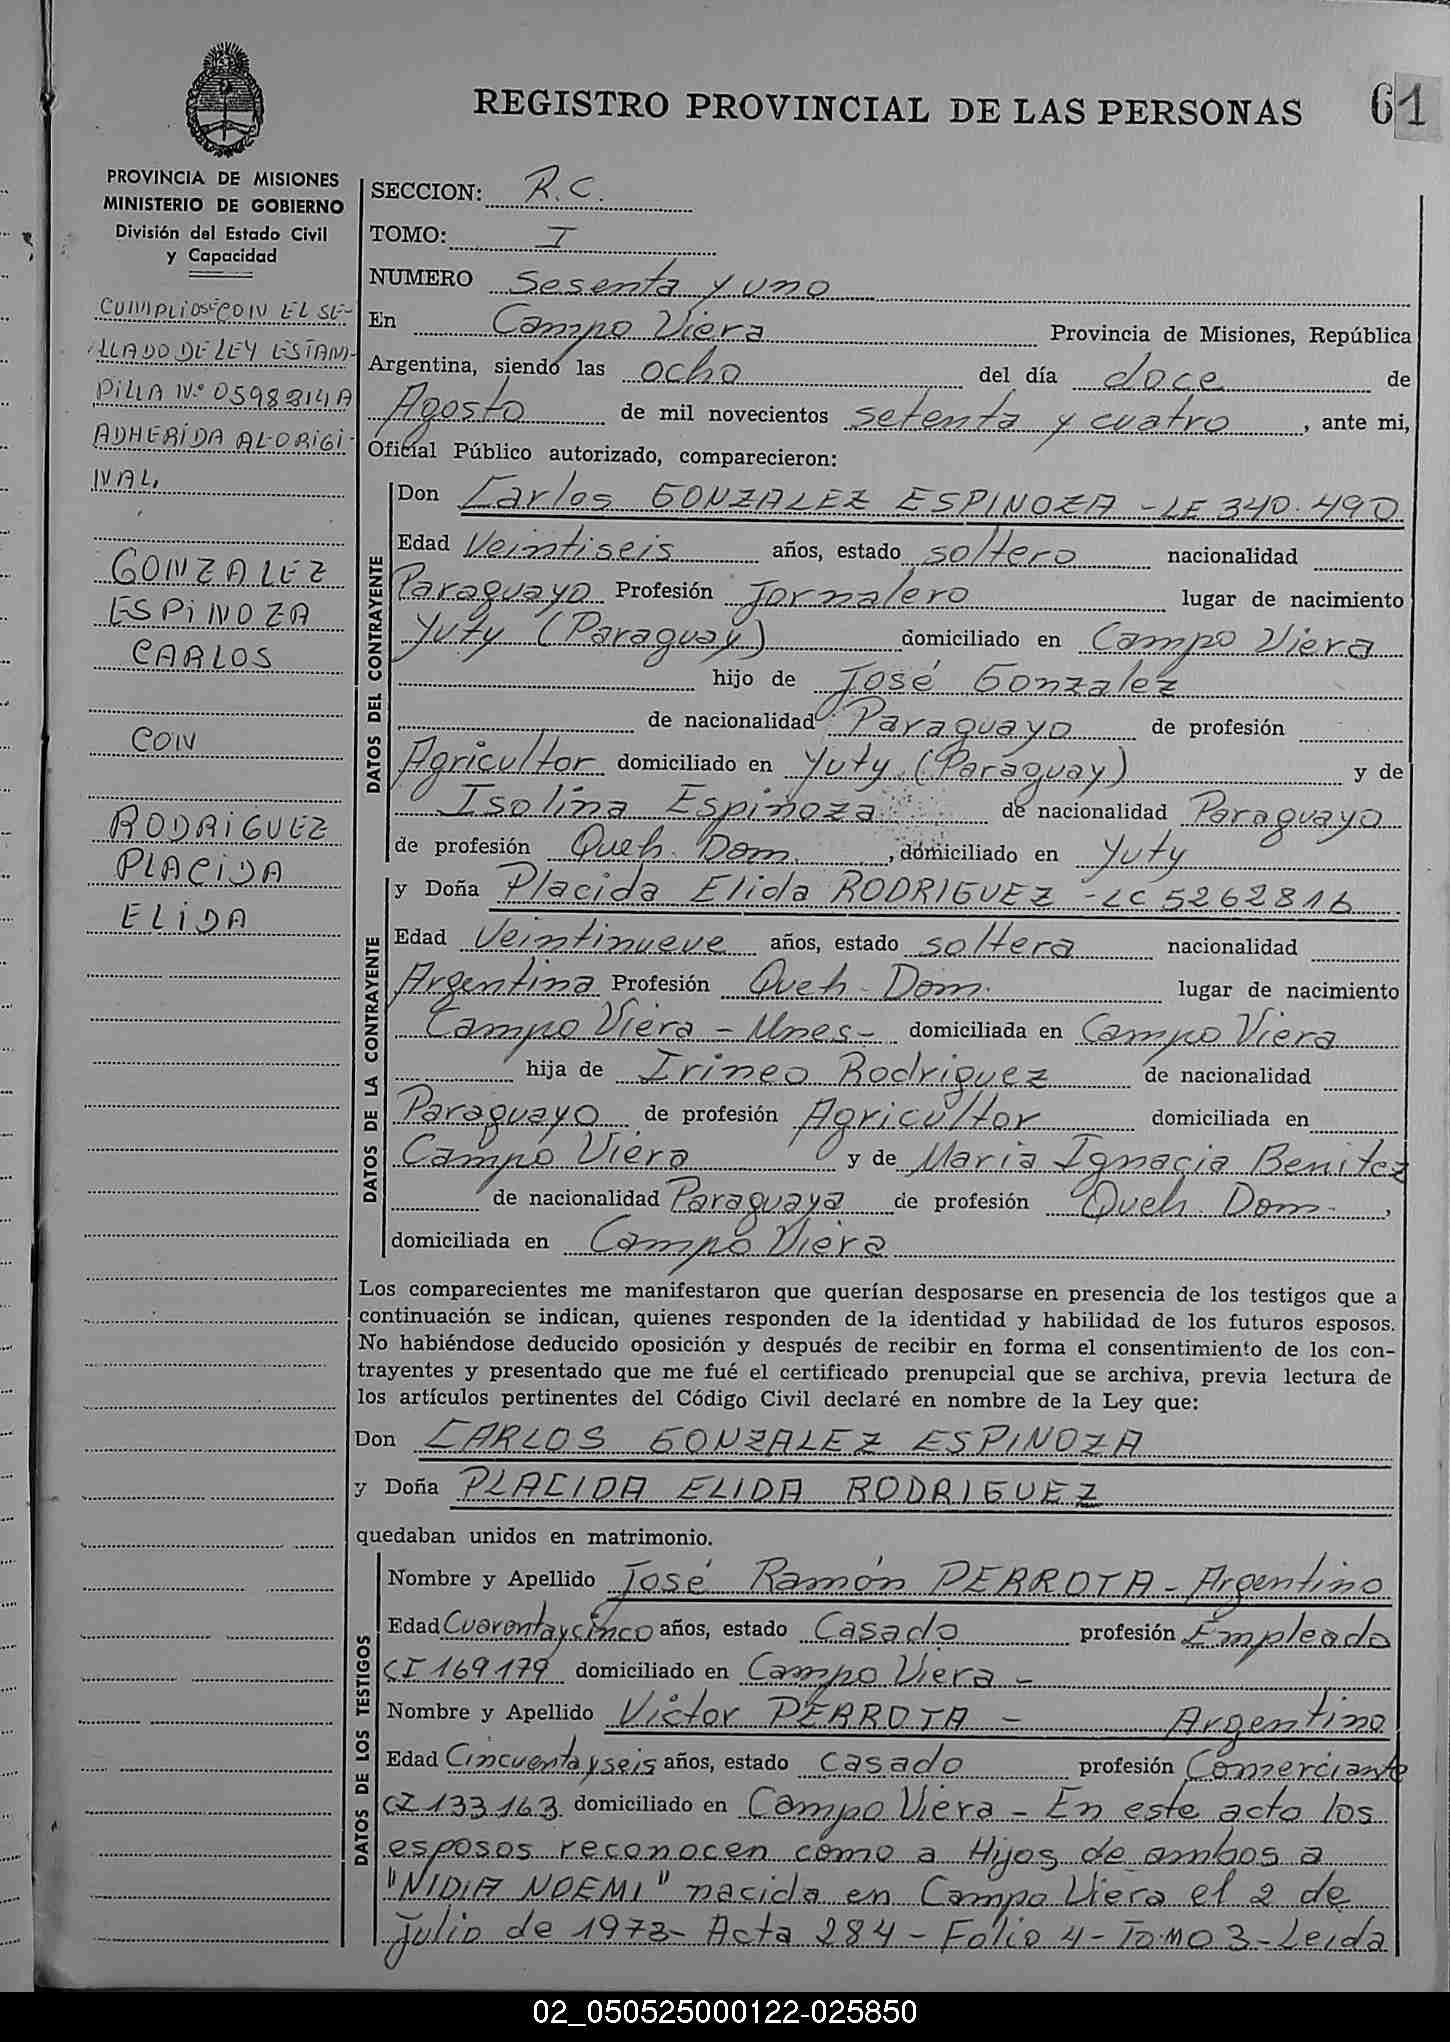 REGISTRO PROVINCIAL DE LAS PERSONAS 61
PROVINCIA DE MISIONES
MINISTERIO DE GOBIERNO
División del Estado Civil
y Capacidad
CUMPLIOSE CON EL SE-
LLADO DE LEY ESTAM-
PILLA Nº 0598814A
ADHERIDA AL ORIGI-
NAL,
GONZALEZ
ESPINOZA
CARLOS
CON
RODRIGUEZ
PLACIDA
ELIDA
SECCION: R.C.
TOMO: I
NUMERO Sesenta y uno
En Campo Viera Provincia de Misiones, República
Argentina, siendo las ocho del día doce de
Agosto de mil novecientos setenta y cuatro, ante mi,
Oficial Público autorizado, comparecieron:
DATOS DEL CONTRAYENTE
Don Carlos GONZALEZ ESPINOZA - LE 340.490
Edad Veintiseis años, estado soltero nacionalidad
Paraguayo Profesión Jornalero lugar de nacimiento
Yuty (Paraguay) domiciliado en Campo Viera
hijo de José Gonzalez
de nacionalidad Paraguayo de profesión
Agricultor domiciliado en Yuty (Paraguay) y de
Isolina Espinoza de nacionalidad Paraguayo
de profesión Queh. Dom. , domiciliado en Yuty
DATOS DE LA CONTRAYENTE
y Doña Placida Elida RODRIGUEZ - LC 5262816
Edad Veintinueve años, estado soltera nacionalidad
Argentina Profesión Queh. Dom. lugar de nacimiento
Campo Viera - Mnes - domiciliada en Campo Viera
hija de Irineo Rodriguez de nacionalidad
Paraguayo de profesión Agricultor domiciliada en
Campo Viera y de Maria Ignacia Benitez
de nacionalidad Paraguaya de profesión Queh. Dom. ,
domiciliada en Campo Viera
Los comparecientes me manifestaron que querían desposarse en presencia de los testigos que a
continuación se indican, quienes responden de la identidad y habilidad de los futuros esposos.
No habiéndose deducido oposición y después de recibir en forma el consentimiento de los con-
trayentes y presentado que me fué el certificado prenupcial que se archiva, previa lectura de
los artículos pertinentes del Código Civil declaré en nombre de la Ley que:
Don CARLOS GONZALEZ ESPINOZA
y Doña PLACIDA ELIDA RODRIGUEZ
quedaban unidos en matrimonio.
DATOS DE LOS TESTIGOS
Nombre y Apellido José Ramón PERROTA - Argentino
Edad Cuarenta y cinco años, estado Casado profesión Empleado
CI 169179 domiciliado en Campo Viera -
Nombre y Apellido Victor PERROTA - Argentino
Edad Cincuenta y seis años, estado casado profesión Comerciante
CI 133.163 domiciliado en Campo Viera - En este acto los
esposos reconocen como a Hijos de ambos a
"NIDIA NOEMI" nacida en Campo Viera el 2 de
Julio de 1973 - Acta 284 - Folio 4 - TOMO 3 - Leida
02_050525000122-025850